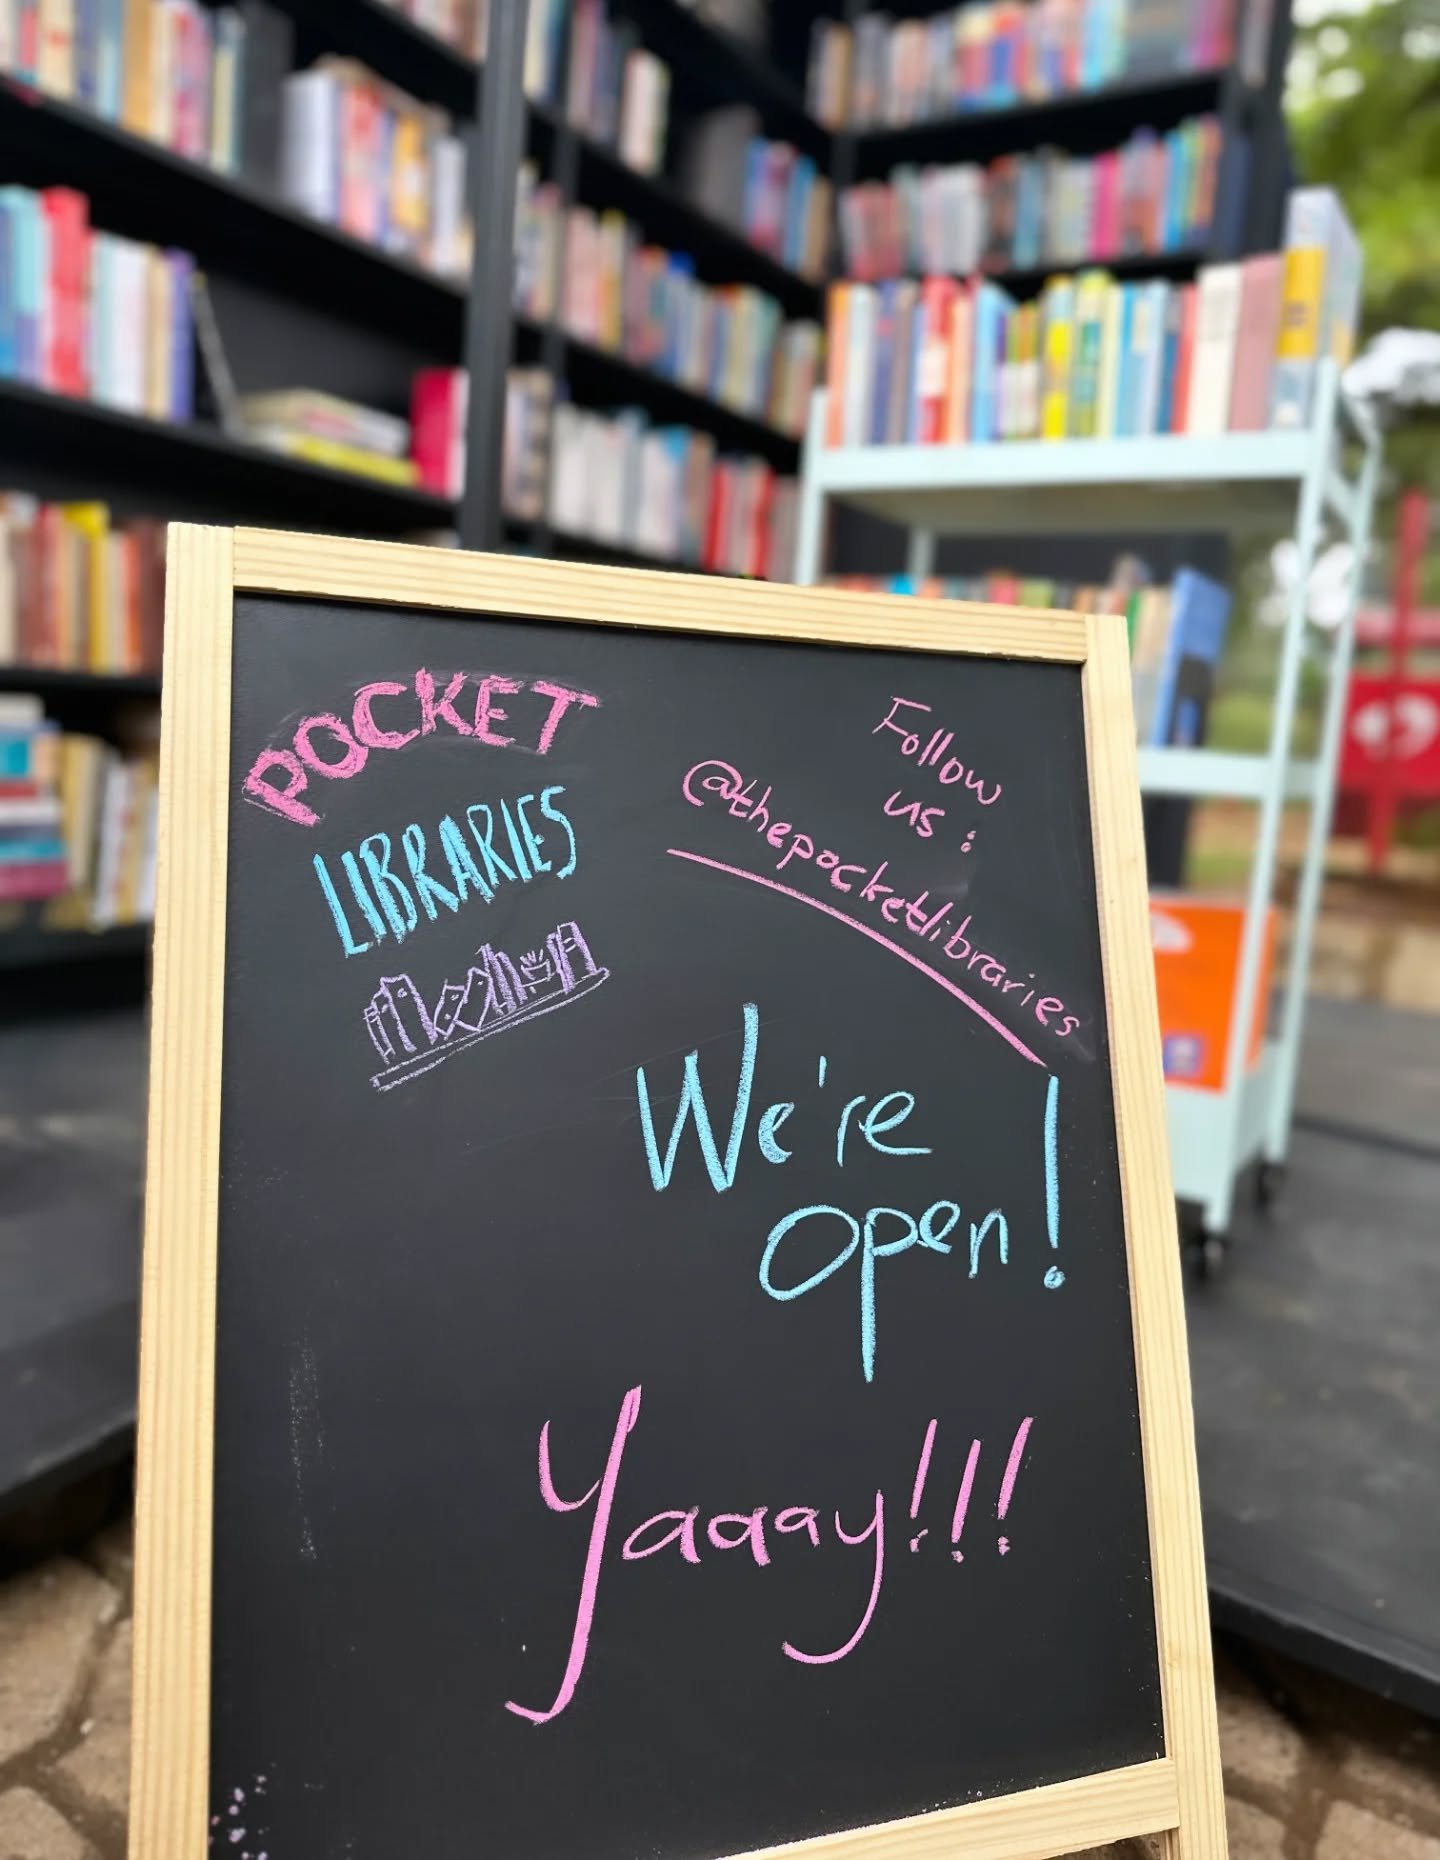 POCKET
LIBRARIES
Follow
us :
@thepocketlibraries
We're
open!
Yaaaay!!!